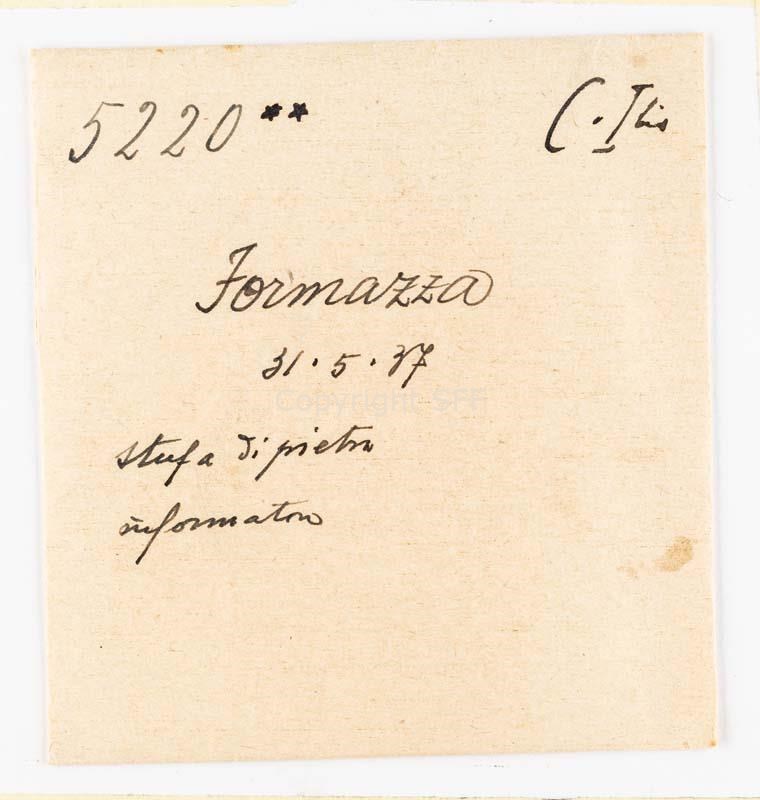 5220 ** C. Ibis
Formazza
31.5.37
stufa di pietra
informatore
Copyright SFF